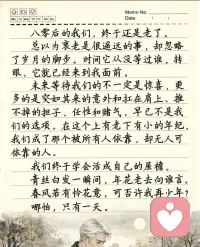 Memo No.
Mo Tu We Th Fr Sa Su
Date
八零后的我们，终于还是老了。
总以为衰老是很遥远的事，却忽略
了岁月的脚步。时间它从没等过谁，转
眼，它就已经来到我面前。
未来等待我们的不一定是惊喜，更
多的是突如其来的意外和扛在肩上、推
不掉的担子，任性和赌气，早已不是我
们的选项，在这个上有老下有小的年纪，
我们成了那个被所有人依靠，却无人可
依靠的人。
我们终于学会活成自己的屋檐。
青丝白发一瞬间，年花老去向谁言，
春风若有怜花意，可否许我再少年？
哪怕，只有一天。